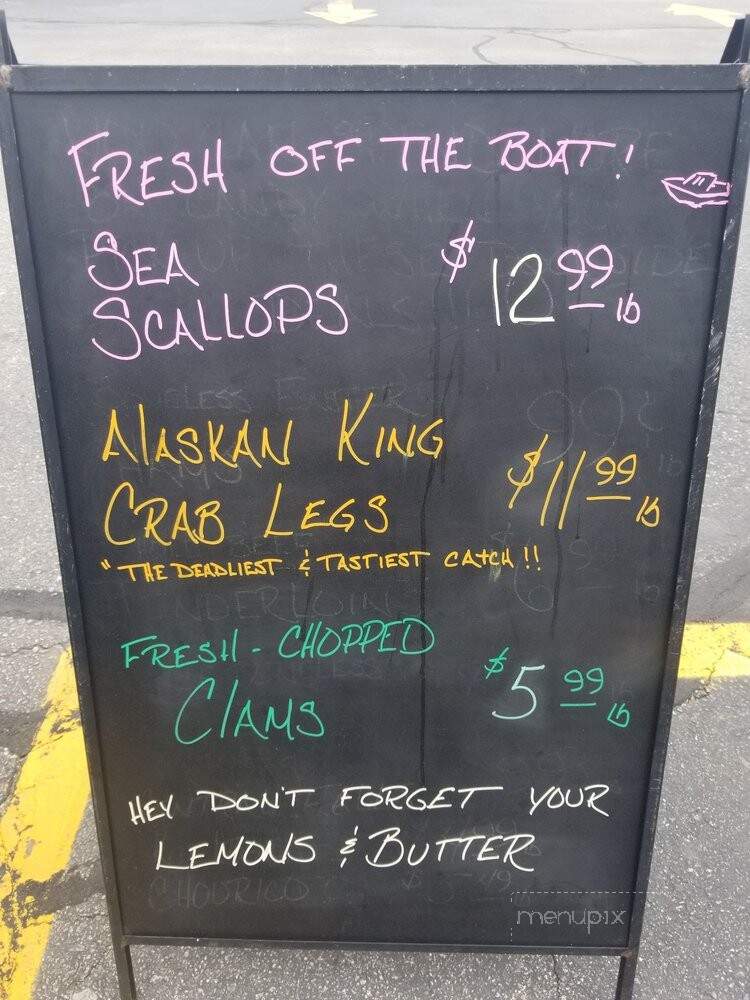 FRESH OFF THE BOAT!
SEA $12 99 lb
SCALLOPS
ALASKAN KING
CRAB LEGS $11 99 lb
"THE DEADLIEST & TASTIEST CATCH!!
FRESH-CHOPPED
CLAMS $5 99 lb
HEY DON'T FORGET YOUR
LEMONS & BUTTER
CHOURICO
menupix